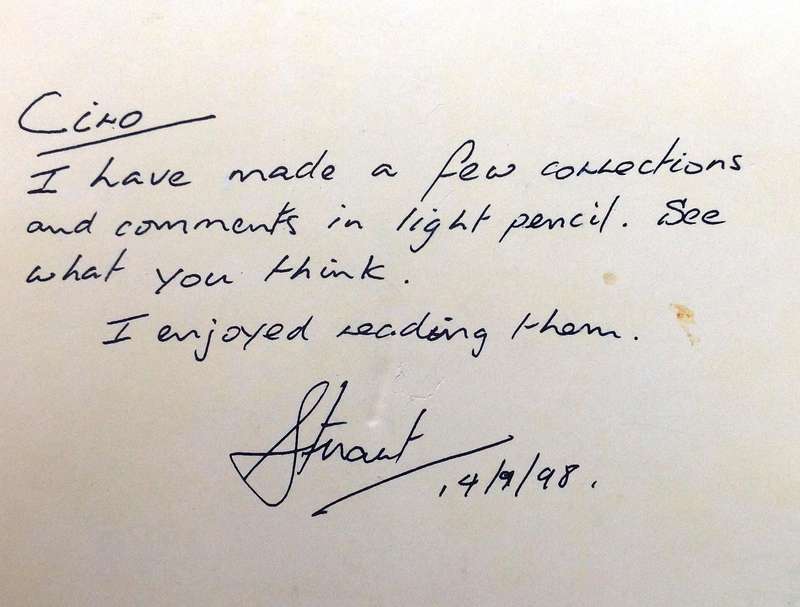 Ciro
I have made a few corrections
and comments in light pencil. See
what you think.
I enjoyed reading them.
Stuart
14/9/98.